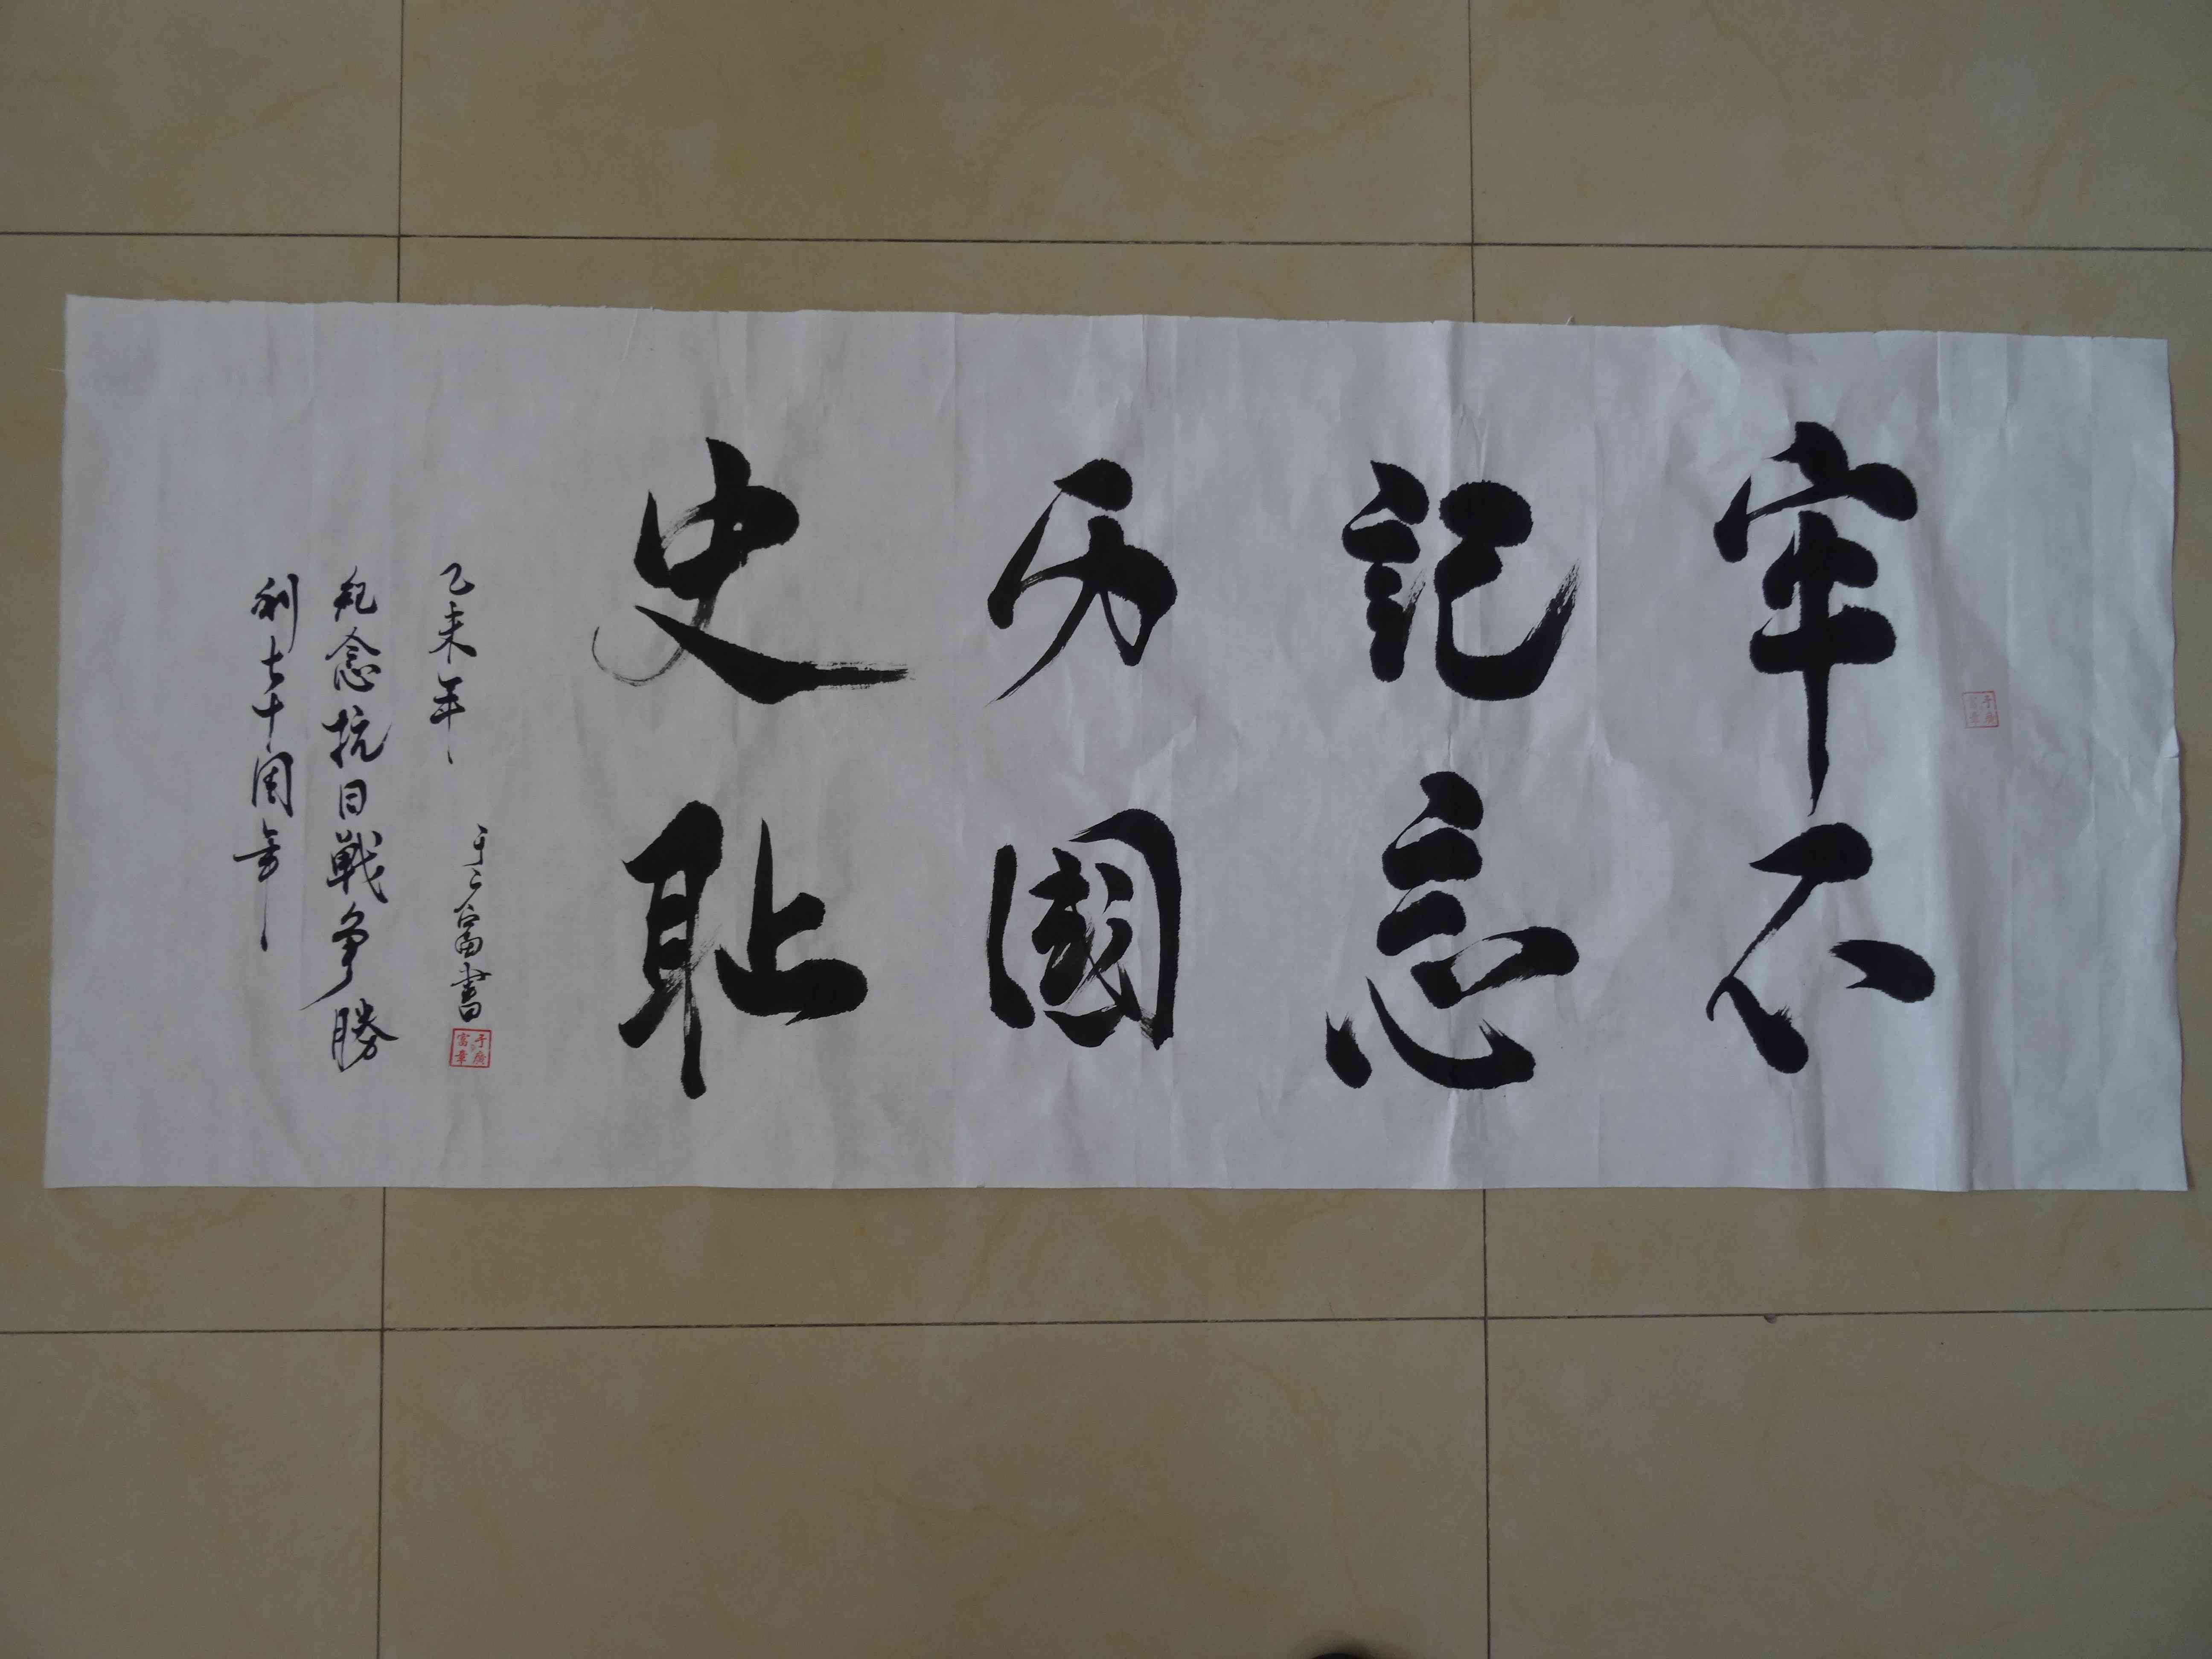 牢記历史
不忘國耻
乙未年
于广富書
于廣富章
紀念抗日戰争勝
利七十周年